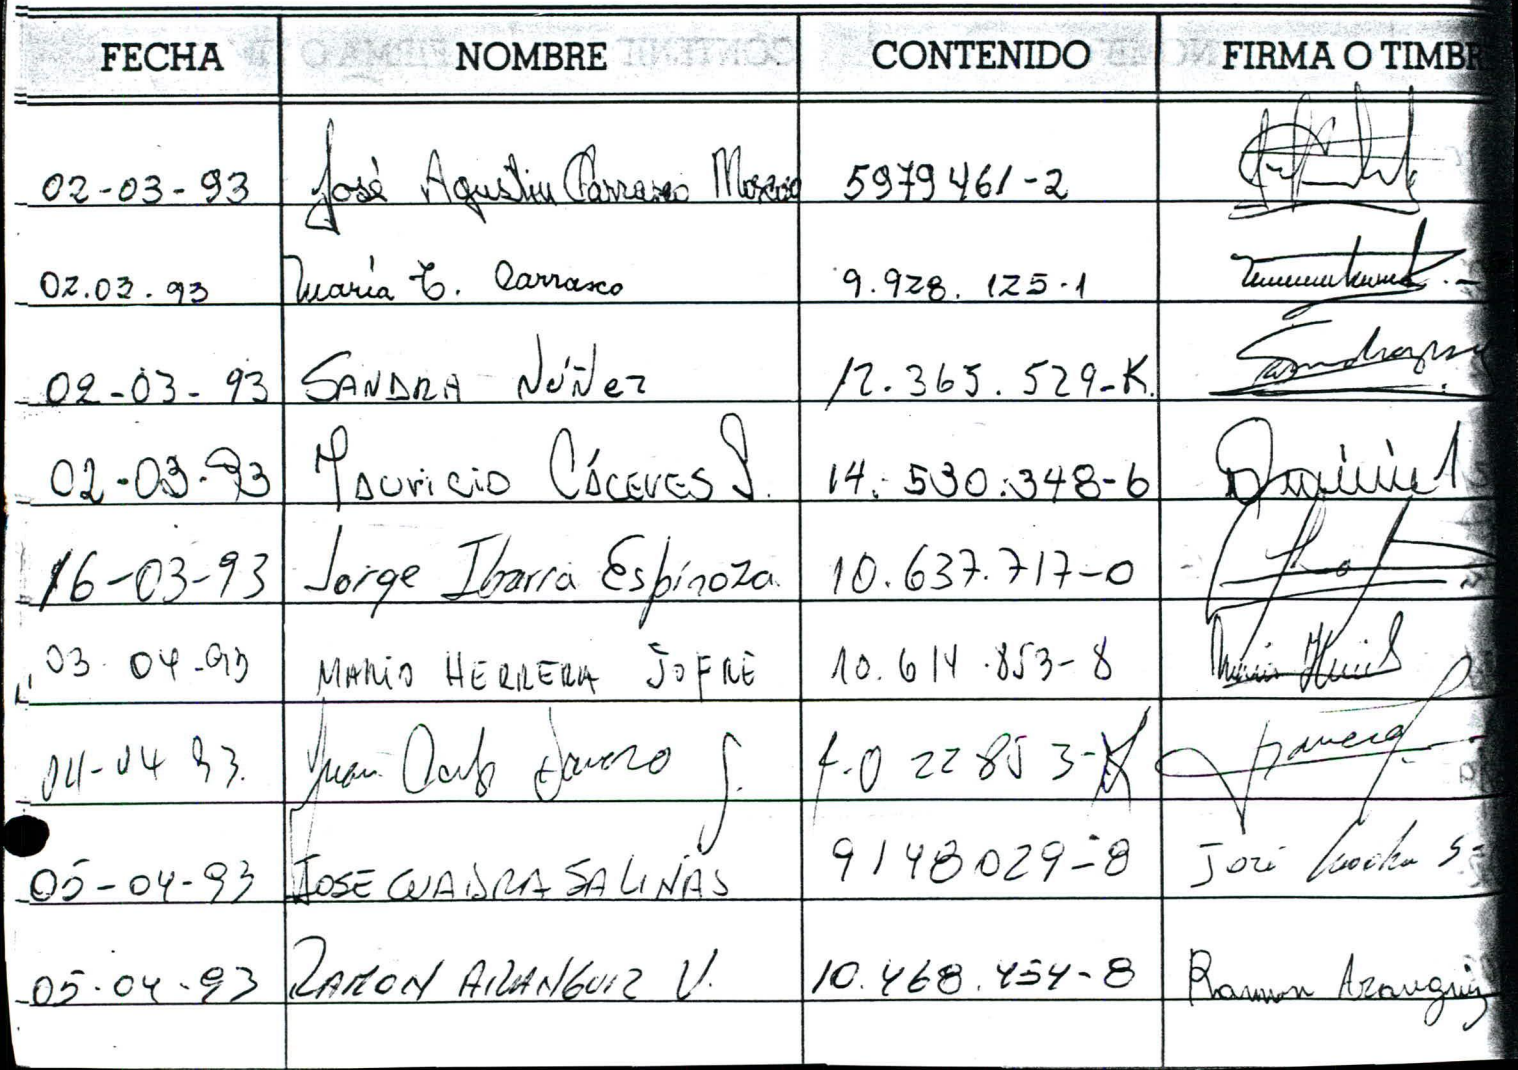 FECHA NOMBRE CONTENIDO FIRMA O TIMBR
02-03-93 José Agustin Carrasco 5979461-2
02.03.93 María E. Carrasco 9.928.125-1
02-03-93 SANDRA NÚÑEZ 12.365.529-K
02-03-93 MAURICIO CÁCERES S. 14.530.348-6
16-03-93 Jorge Ibarra Espinoza 10.637.717-0
03 04-93 MARIO HERRERA JOFRE 10.614.853-8
04-04 93. Juan Carlos
05-04-93 JOSE CUADRA SALINAS 9148029-8 José
05-04-93 RAMON ARANGUIZ V. 10.468.454-8 Ramon Aranguiz